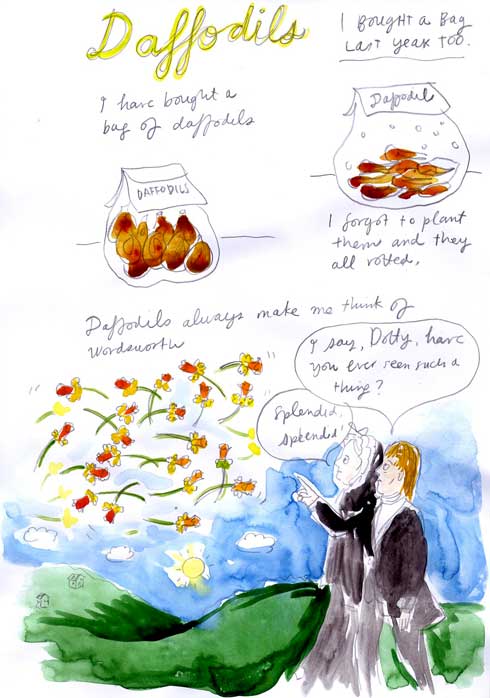 Daffodils
I have bought a
bag of daffodils
DAFFODILS
I BOUGHT A BAG
LAST YEAR TOO.
Daffodil
I forgot to plant
them and they
all rotted.
Daffodils always make me think of
Wordsworth
I say, Dotty, have
you ever seen such a
thing?
Splendid,
splendid!